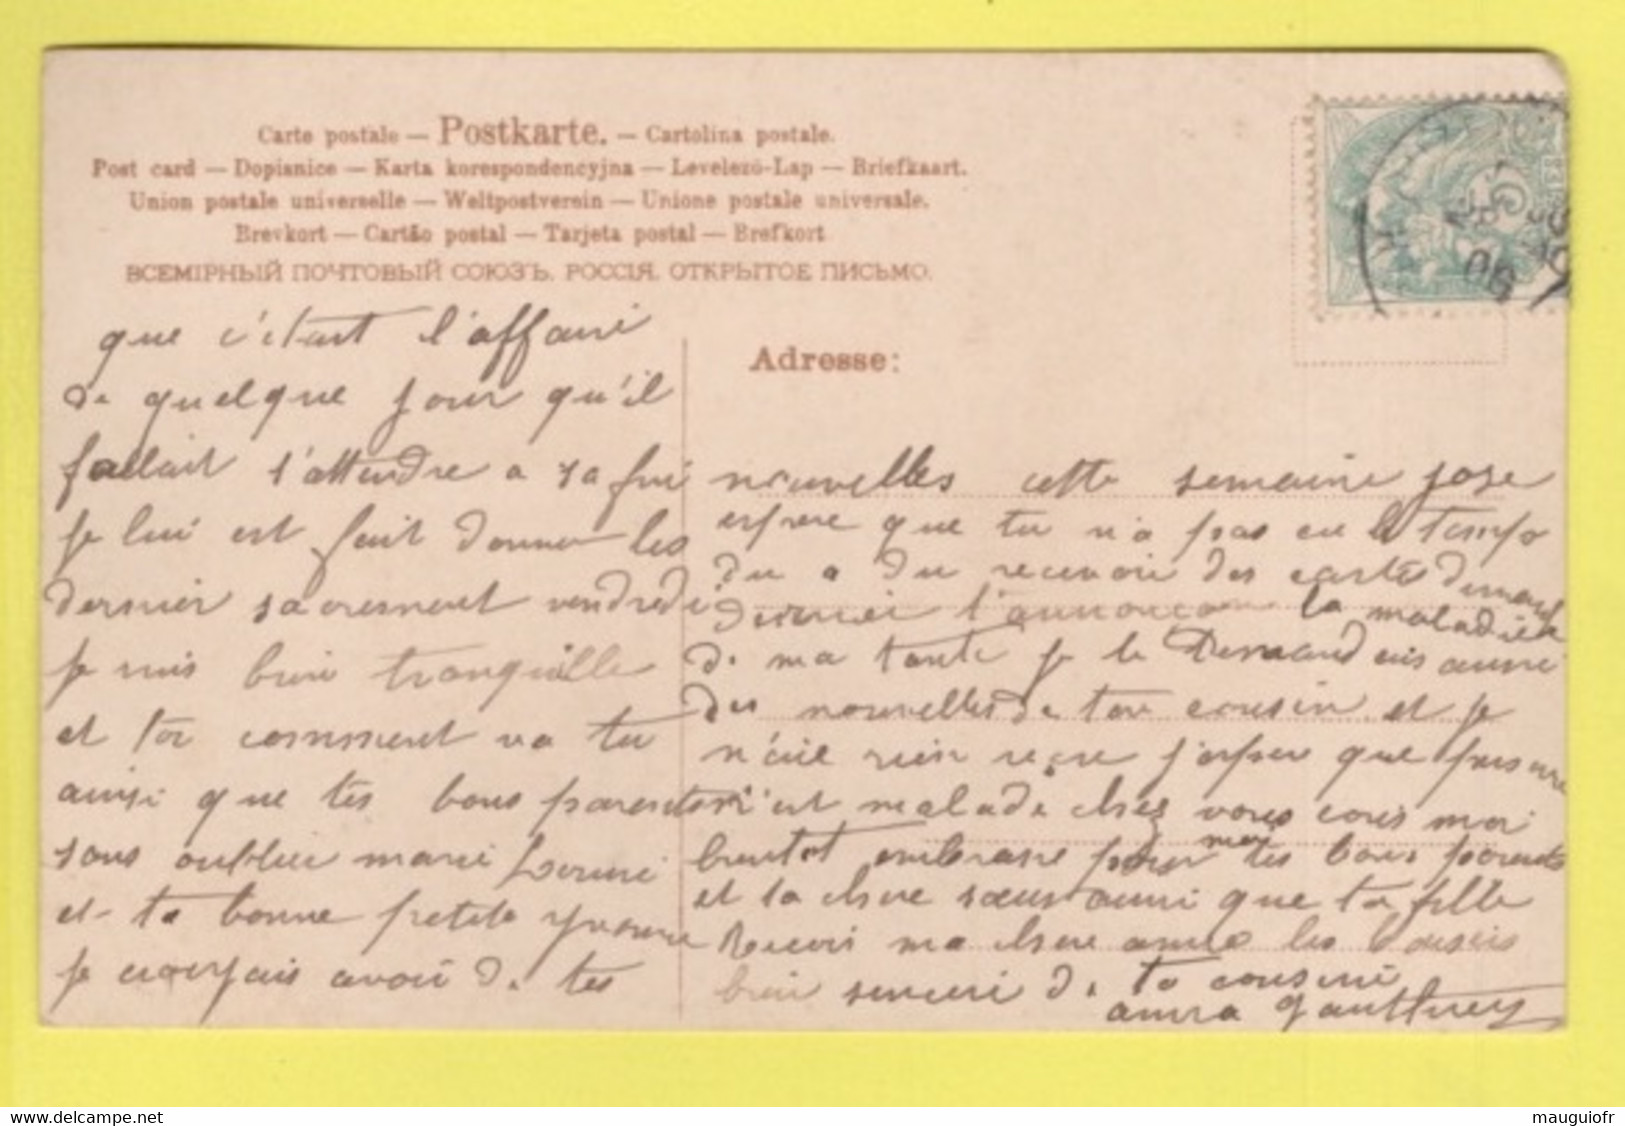 Carte postale — Postkarte. — Cartolina postale.
Post card — Dopisnice — Karta korespondencyjna — Levelező-Lap — Briefkaart.
Union postale universelle — Weltpostverein — Unione postale universale.
Brevkort — Cartão postal — Tarjeta postal — Brefkort
ВСЕМІРНЫЙ ПОЧТОВЫЙ СОЮЗЪ. РОССІЯ. ОТКРЫТОЕ ПИСЬМО.
Adresse:
que c'était l'affaire
de quelque jour qu'il
fallait s'attendre a sa fin
je lui est fait donner les
dernier sacresment vendredi
je suis bien tranquille
et toi comment va tu
ainsi que tes bons parents
sans oublier marie Louise
et ta bonne petite Yvonne
je croyais avoir de tes
nouvelles cette semaine jose
espere que tu n'a pas eu le temps
du a du recevoir des carte
dernier t'annoncan la maladie
de ma tante je te Demand ais aussi
des nouvelles de ton cousin et je
n'aie rien reçre j'esper que
n'est malade chez vous
bientot embrasse pour moi tes bons parents
et ta chere sœur aussi que ta fille
Recois ma chere amie les baisers
bien sincere de ta cousine
anna Gauthiez
mauguiofr
www.delcampe.net